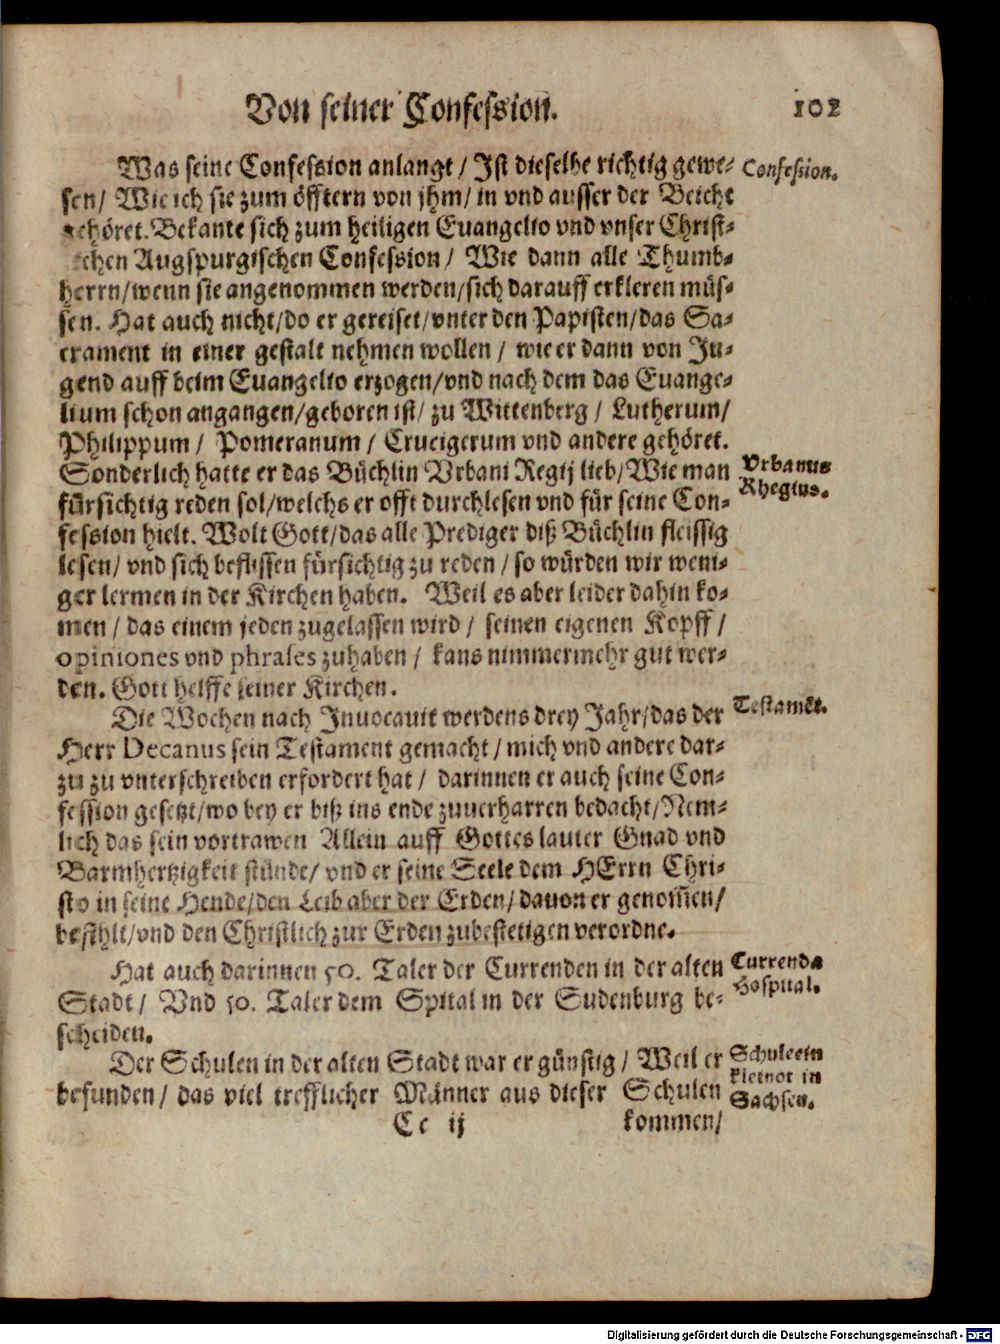 Von seiner Confession.
102
Was seine Confession anlangt / Ist dieselbe richtig gewe-
Confession.
sen/ Wie ich sie zum öfftern von jhm/ in vnd ausser der Beicht
gehöret. Bekante sich zum heiligen Euangelio vnd vnser Christ-
chen Augspurgischen Confession / Wie dann alle Thumb-
herrn/wenn sie angenommen werden/sich darauff erkleren müs-
sen. Hat auch nicht/do er gereiset/vnter den Papisten/das Sa-
crament in einer gestalt nehmen wollen / wie er dann von Ju-
gend auff beim Euangelio erzogen/vnd nach dem das Euange-
lium schon angangen/geboren ist/ zu Wittenberg / Lutherum/
Philippum / Pomeranum / Crucigerum vnd andere gehöret.
Sonderlich hatte er das Büchlin Vrbani Regij lieb/Wie man
Vrbanus
fürsichtig reden sol/welchs er offt durchlesen vnd für seine Con-
Rhegius.
fession hielt. Wolt Gott/das alle Prediger diß Büchlin fleissig
lesen/ vnd sich beflissen fürsichtig zu reden / so würden wir weni-
ger lermen in der Kirchen haben. Weil es aber leider dahin ko-
men / das einem jeden zugelassen wird / seinen eigenen Kopff /
opiniones vnd phrases zuhaben / kans nimmermehr gut wer-
den. Gott helffe seiner Kirchen.
Die Wochen nach Inuocauit werdens drey Jahr/das der
Testament.
Herr Decanus sein Testament gemacht / mich vnd andere dar-
zu zu vnterschreiben erfordert hat / darinnen er auch seine Con-
fession gesetzt/wo bey er biß ins ende zuuerharren bedacht/Nem-
lich das sein vortrawen Allein auff Gottes lauter Gnad vnd
Barmhertzigkeit stünde/ vnd er seine Seele dem HErrn Chri-
sto in seine Hende/den Leib aber der Erden/dauon er genom̃en/
befihlt/vnd den Christlich zur Erden zubestetigen verordne.
Hat auch darinnen 50. Taler der Currenden in der alten
Currenda
Stadt / Vnd 50. Taler dem Spital in der Sudenburg be-
Hospital.
scheiden.
Der Schulen in der alten Stadt war er günstig / Weil er
Schule ein
befunden / das viel trefflicher Männer aus dieser Schulen
kleinot in
Sachsen.
Cc ij
kommen/
Digitalisierung gefördert durch die Deutsche Forschungsgemeinschaft - DFG